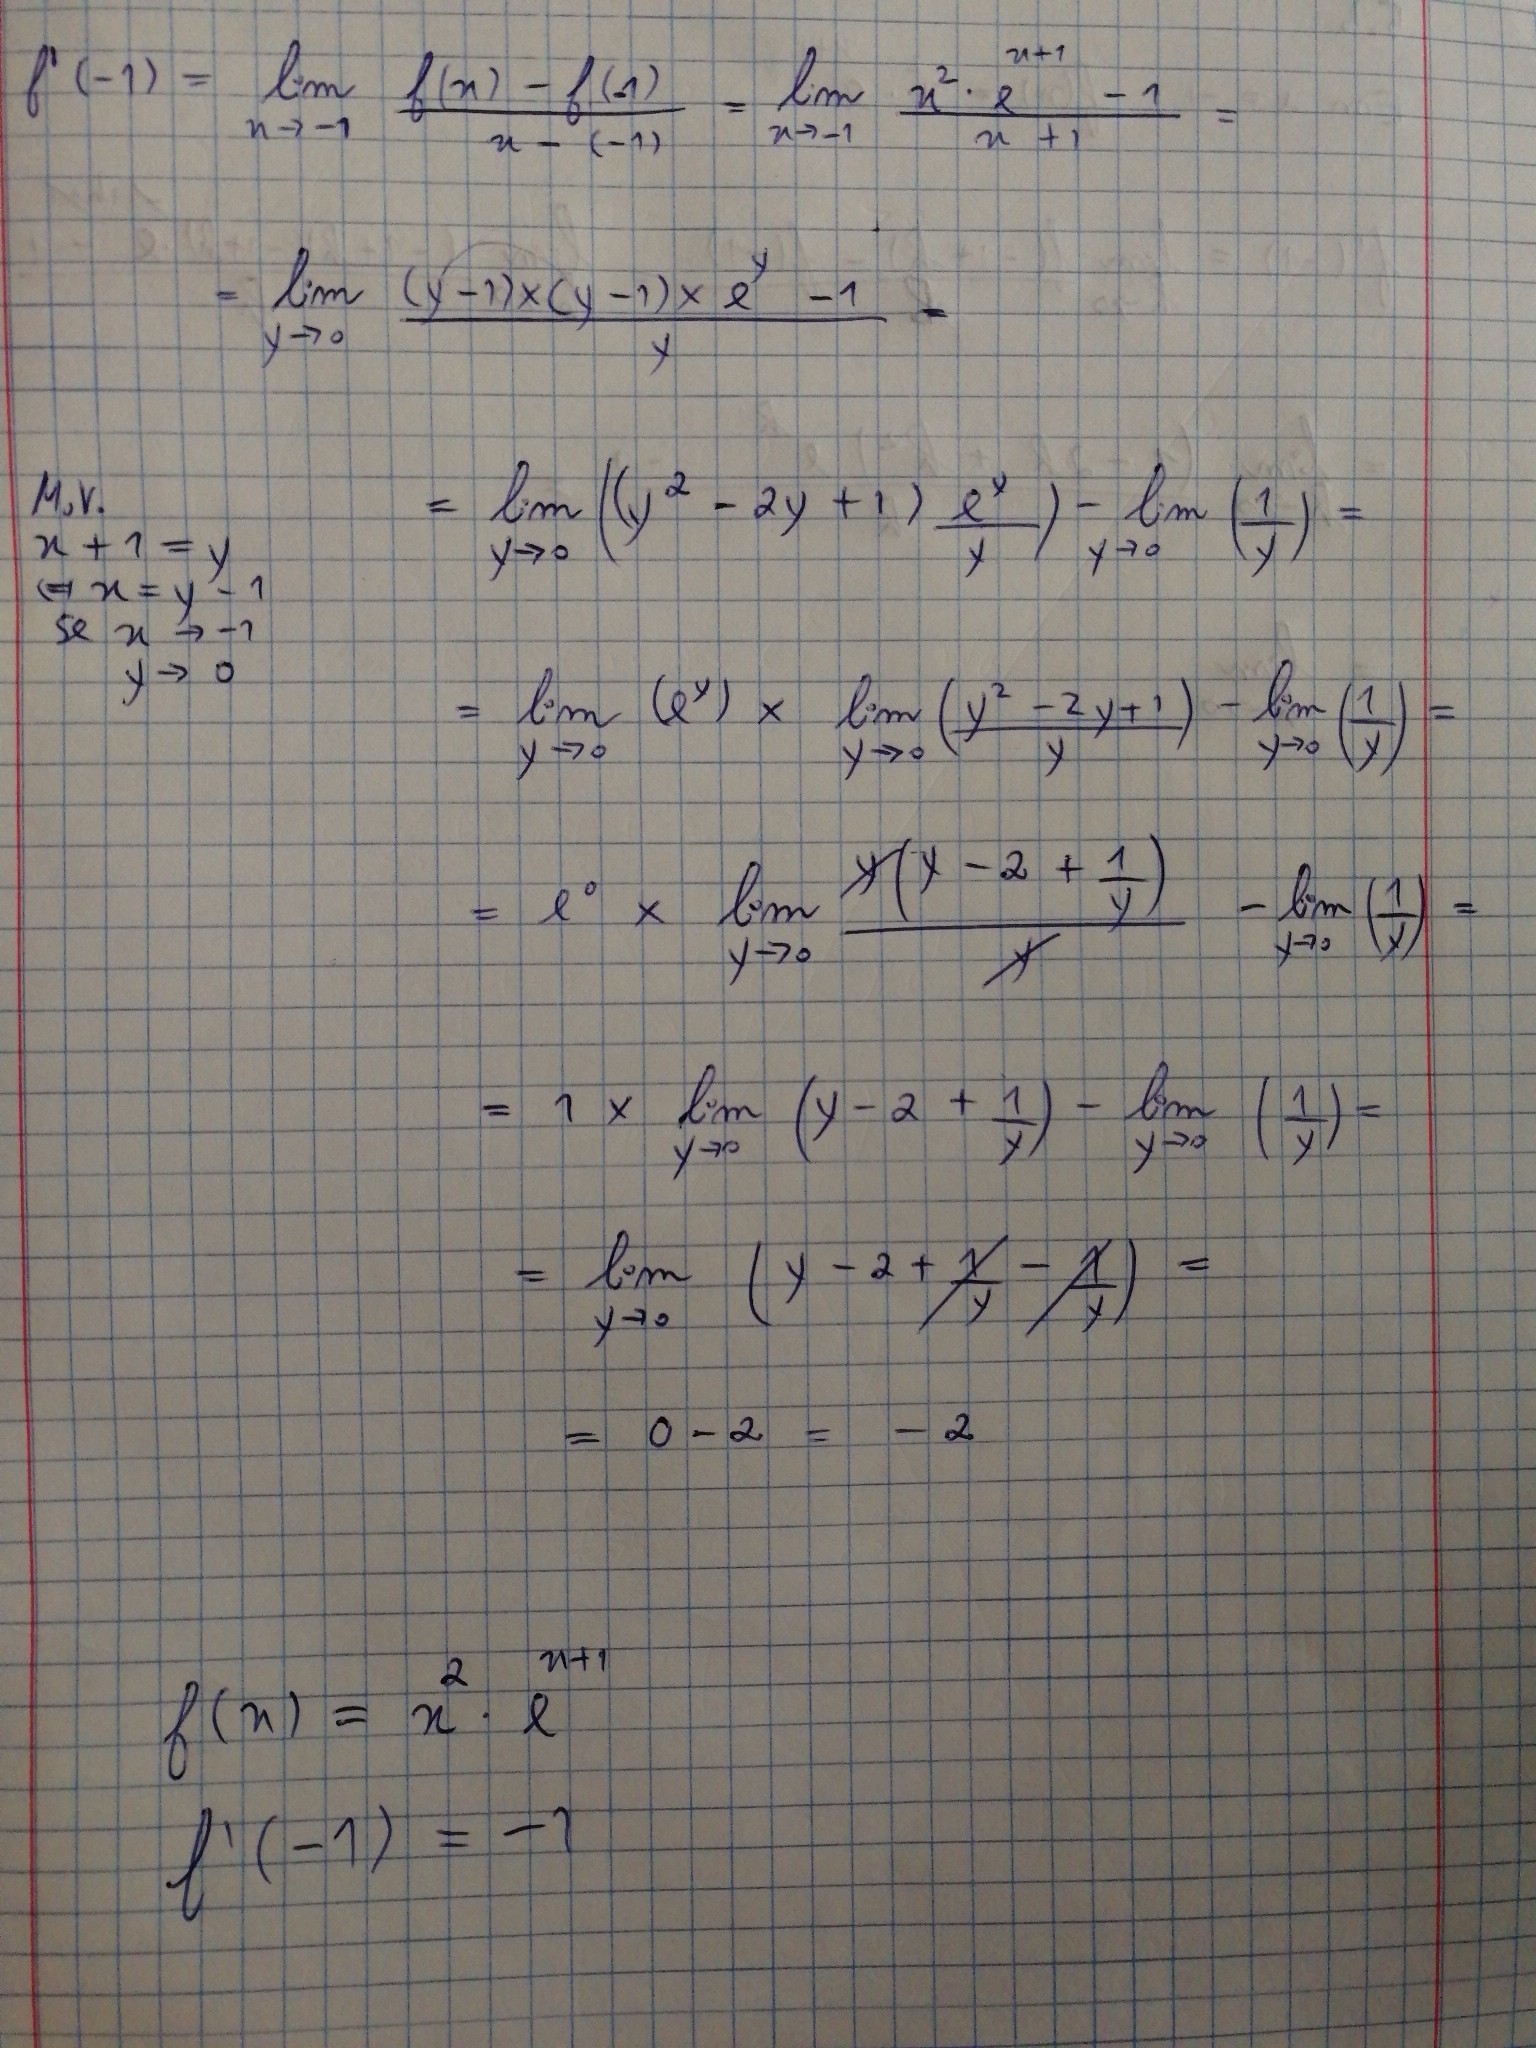 f'(-1) = lim x→-1 (f(x) - f(-1))/(x - (-1)) = lim x→-1 (x² · e^(x+1) - 1)/(x + 1) =
= lim y→0 ((y-1)×(y-1)× e^y - 1)/y =
M.V.
x + 1 = y
⇔ x = y - 1
se x → -1
y → 0
= lim y→0 ((y² - 2y + 1) e^y/y) - lim y→0 (1/y) =
= lim y→0 (e^y) × lim y→0 ((y² - 2y + 1)/y) - lim y→0 (1/y) =
= e^0 × lim y→0 y(y - 2 + 1/y)/y - lim y→0 (1/y) =
= 1 × lim y→0 (y - 2 + 1/y) - lim y→0 (1/y) =
= lim y→0 (y - 2 + 1/y - 1/y) =
= 0 - 2 = - 2
f(x) = x² · e^(x+1)
f'(-1) = -1